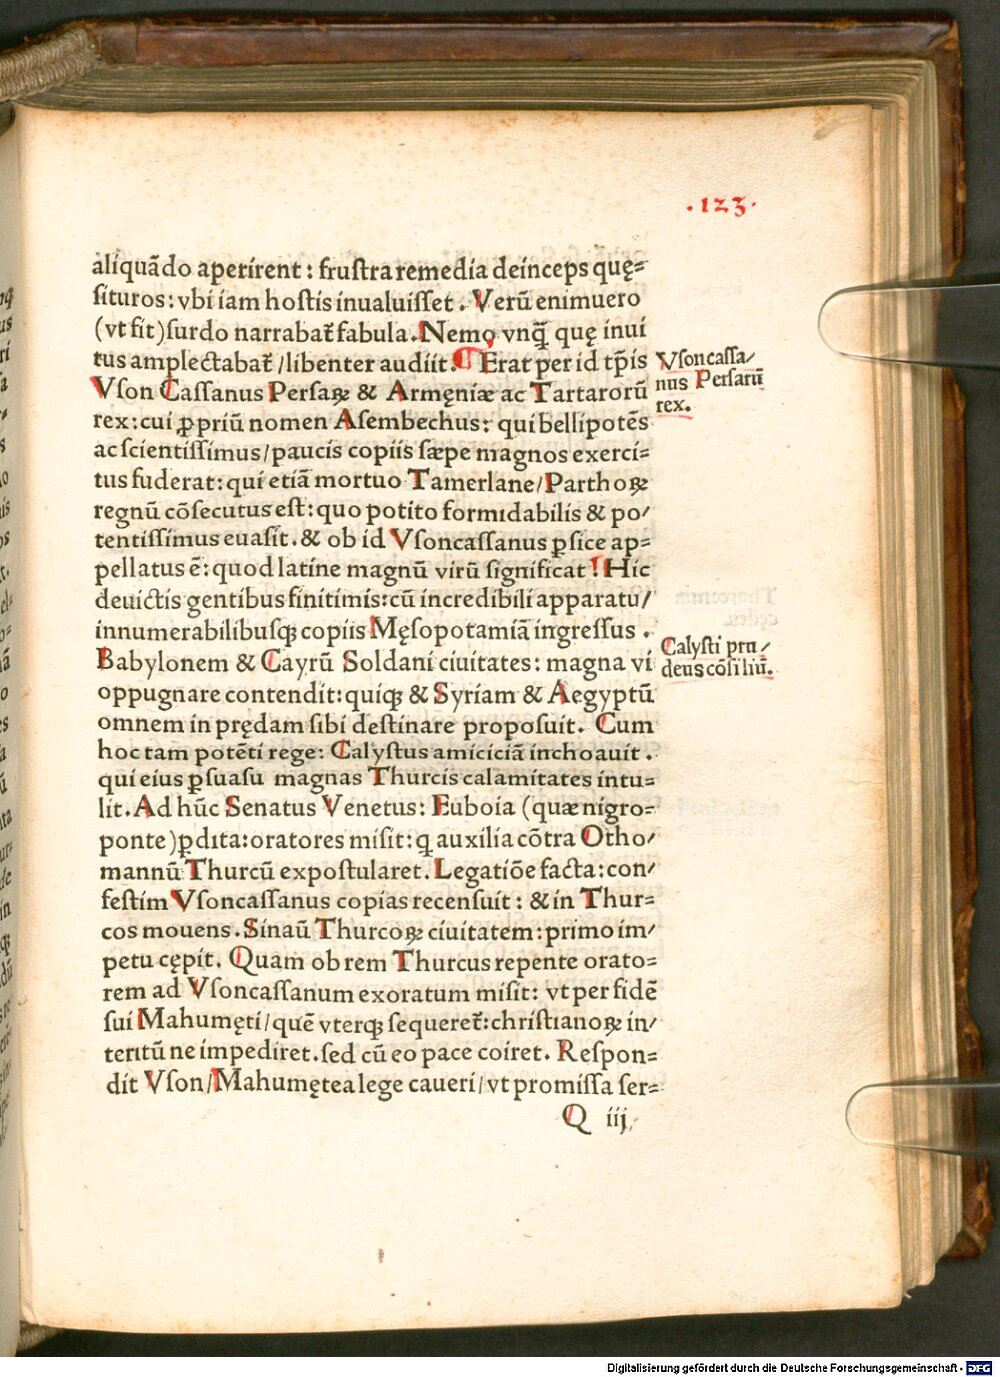 .123.
aliquãdo aperirent : frustra remedia deinceps quę=
situros : vbi iam hostis inualuisset . Verũ enimuero
(vt fit) surdo narrabat̃ fabula. Nemo vnq̃ quę inui
tus amplectabat̃ / libenter audiit. ¶ Erat per id tp̃is
Vson Cassanus Persaꝝ & Armęniæ ac Tartarorũ
rex : cui ꝓpriũ nomen Asembechus : qui bellipotẽs
ac scientissimus / paucis copiis sæpe magnos exerci=
tus fuderat : qui etiã mortuo Tamerlane / Parthoꝝ
regnũ cõsecutus est : quo potito formidabilis & po/
tentissimus euasit . & ob id Vsoncassanus ꝑsice ap=
pellatus ẽ : quod latine magnũ virũ significat ! Hic
deuictis gentibus finitimis : cũ incredibili apparatu/
innumerabilibusqꝫ copiis Męsopotamiã ingressus .
Babylonem & Cayrũ Soldani ciuitates : magna vi
oppugnare contendit : quiqꝫ & Syriam & Aegyptũ
omnem in prędam sibi destinare proposuit . Cum
hoc tam potẽti rege : Calystus amiciciã inchoauit .
qui eius ꝑsuasu magnas Thurcis calamitates intu=
lit. Ad hũc Senatus Venetus : Euboia (quæ nigro=
ponte) ꝑdita : oratores misit : q auxilia cõtra Otho/
mannũ Thurcũ expostularet . Legatiõe facta : con/
festim Vsoncassanus copias recensuit : & in Thur=
cos mouens . Sinaũ Thurcoꝝ ciuitatem : primo im/
petu cępit. Quam ob rem Thurcus repente orato=
rem ad Vsoncassanum exoratum misit : vt per fidẽ
sui Mahumęti / quẽ vterqꝫ sequeret̃ : christianoꝝ in/
teritũ ne impediret . sed cũ eo pace coiret. Respon=
dit Vson / Mahumętea lege caueri / vt promissa ser=
Q iij
Vsoncassa/
nus Persarũ
rex.
Calysti pru/
dens cõsiliũ.
Digitalisierung gefördert durch die Deutsche Forschungsgemeinschaft - DFG